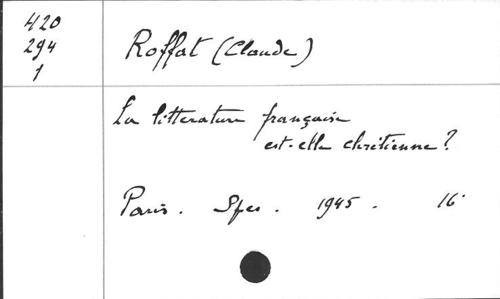 420
294
1
Roffat (Claude)
La littérature française
est-elle chrétienne?
Paris. Spes. 1945. 16°